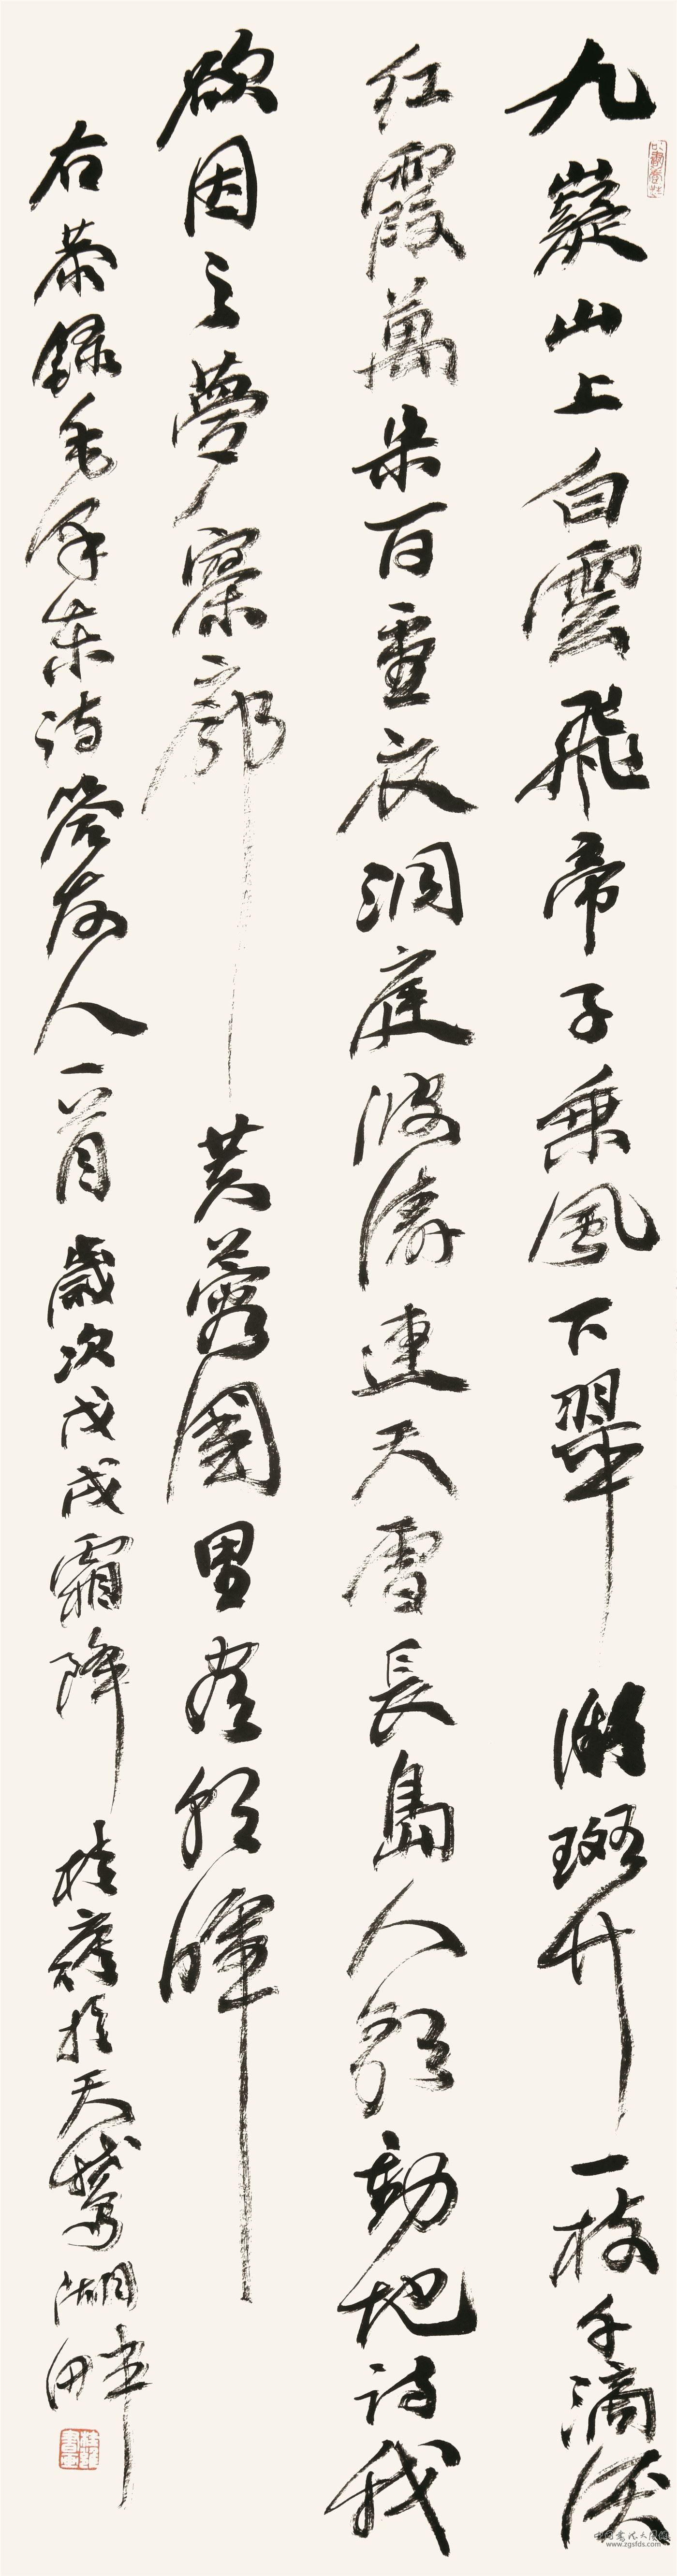 九嶷山上白雲飛帝子乘風下翠微斑竹一枝千滴淚
红霞萬朵百重衣洞庭波濤連天雪長島人歌動地詩我
欲因之夢寥廓芙蓉國里盡朝暉
右恭録毛澤東詩答友人一首歲次戊戌霜降桂於天鵝湖畔
www.zgsfds.com